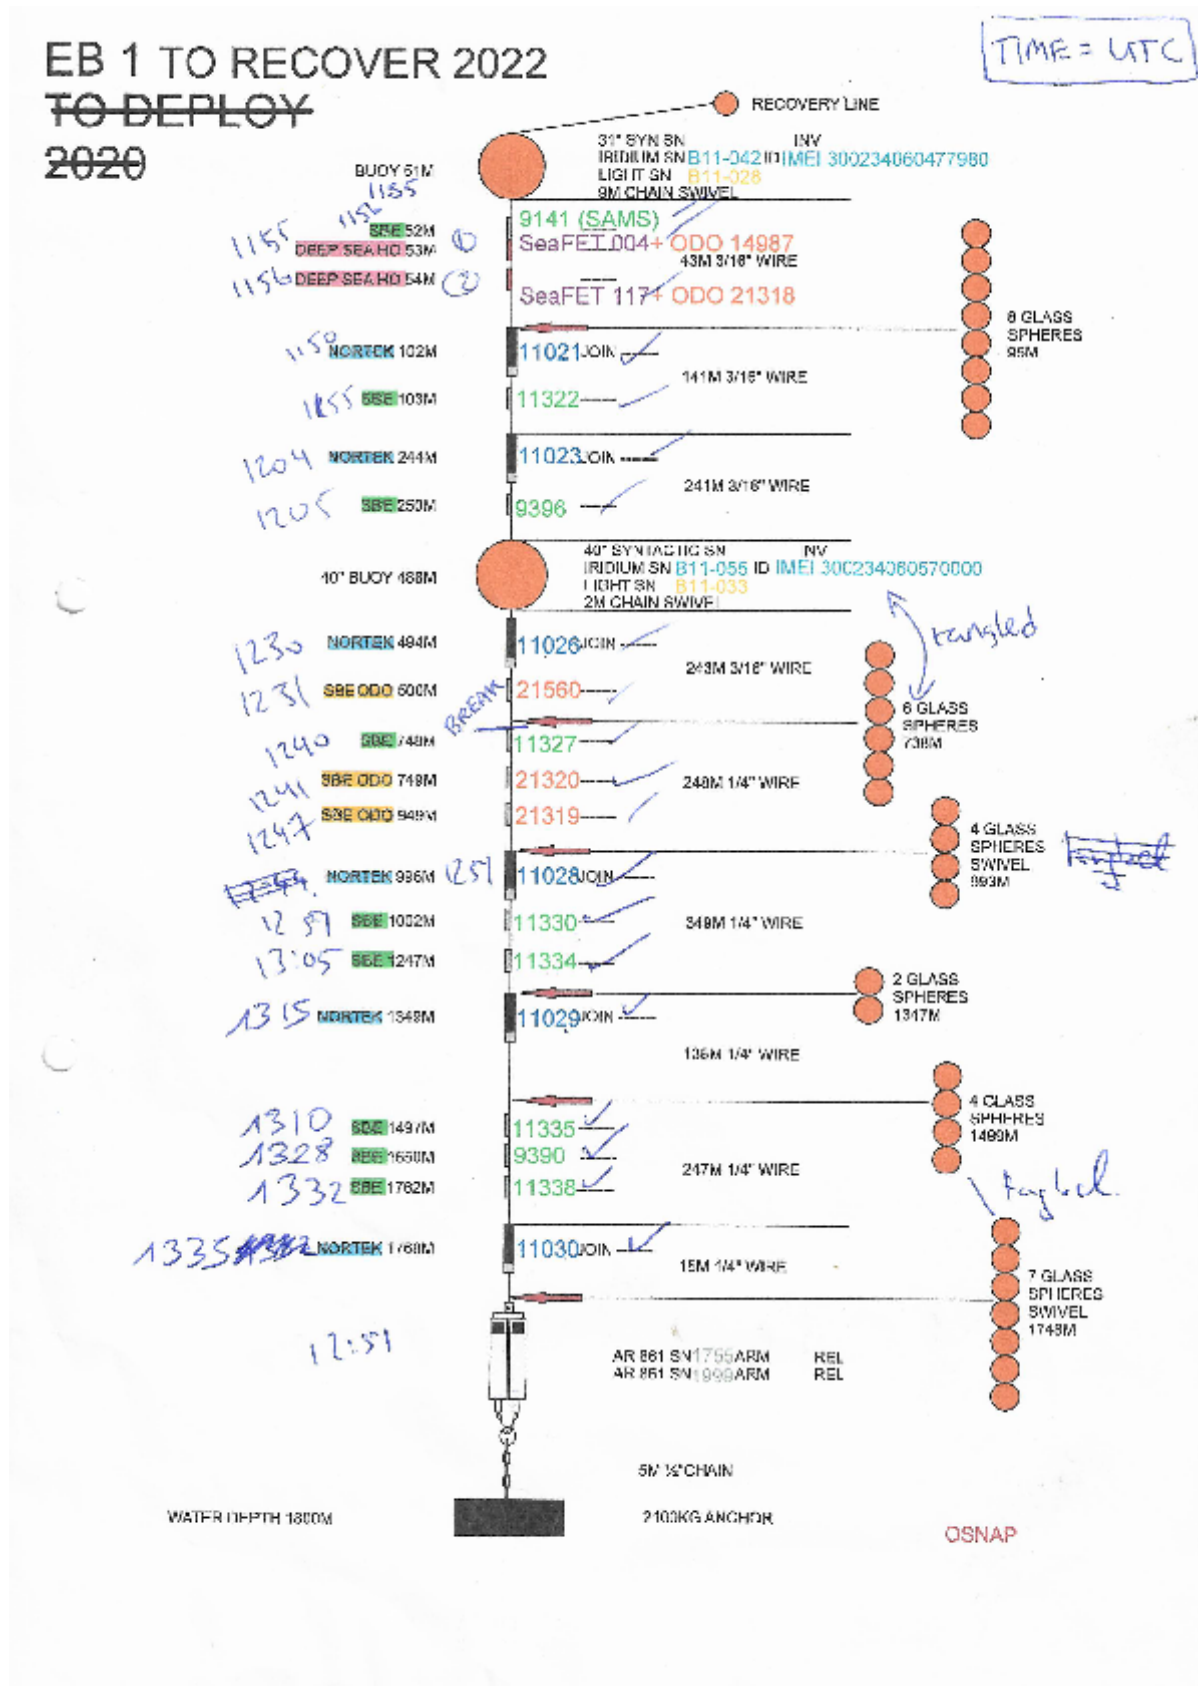 TIME = UTC
EB 1 TO RECOVER 2022
TO DEPLOY
2020
RECOVERY LINE
31" SYN SN INV
IRIDIUM SN B11-042 ID IMEI 300234060477980
LIGHT SN B11-028
9M CHAIN SWIVEL
BUOY 51M
1155
1152
SBE 52M 9141 (SAMS)
1155 DEEP SEA HO 53M ① SeaFET 004+ ODO 14987
43M 3/16" WIRE
1156 DEEP SEA HO 54M ② SeaFET 117+ ODO 21318
8 GLASS
SPHERES
95M
1150 NORTEK 102M 11021 JOIN
141M 3/16" WIRE
1155 SBE 103M 11322
1204 NORTEK 244M 11023 JOIN
241M 3/16" WIRE
1205 SBE 250M 9396
40" SYNTACTIC SN INV
IRIDIUM SN B11-055 ID IMEI 300234060570000
LIGHT SN B11-033
2M CHAIN SWIVEL
40" BUOY 488M
tangled
1230 NORTEK 494M 11026 JOIN
243M 3/16" WIRE
1231 SBE ODO 500M 21560
BREAK
6 GLASS
SPHERES
738M
1240 SBE 748M 11327
1241 SBE ODO 749M 21320
248M 1/4" WIRE
1247 SBE ODO 949M 21319
4 GLASS
SPHERES
SWIVEL
993M
NORTEK 996M 1251 11028 JOIN
1259 SBE 1002M 11330
349M 1/4" WIRE
13:05 SBE 1247M 11334
2 GLASS
SPHERES
1347M
1315 NORTEK 1349M 11029 JOIN
136M 1/4" WIRE
4 GLASS
SPHERES
1499M
1310 SBE 1497M 11335
1328 SBE 1650M 9390
247M 1/4" WIRE
1332 SBE 1762M 11338
tangled
1335 NORTEK 1768M 11030 JOIN
15M 1/4" WIRE
7 GLASS
SPHERES
SWIVEL
1748M
12:51
AR 861 SN 1755 ARM REL
AR 861 SN 1999 ARM REL
5M ½" CHAIN
WATER DEPTH 1800M
2100KG ANCHOR
OSNAP